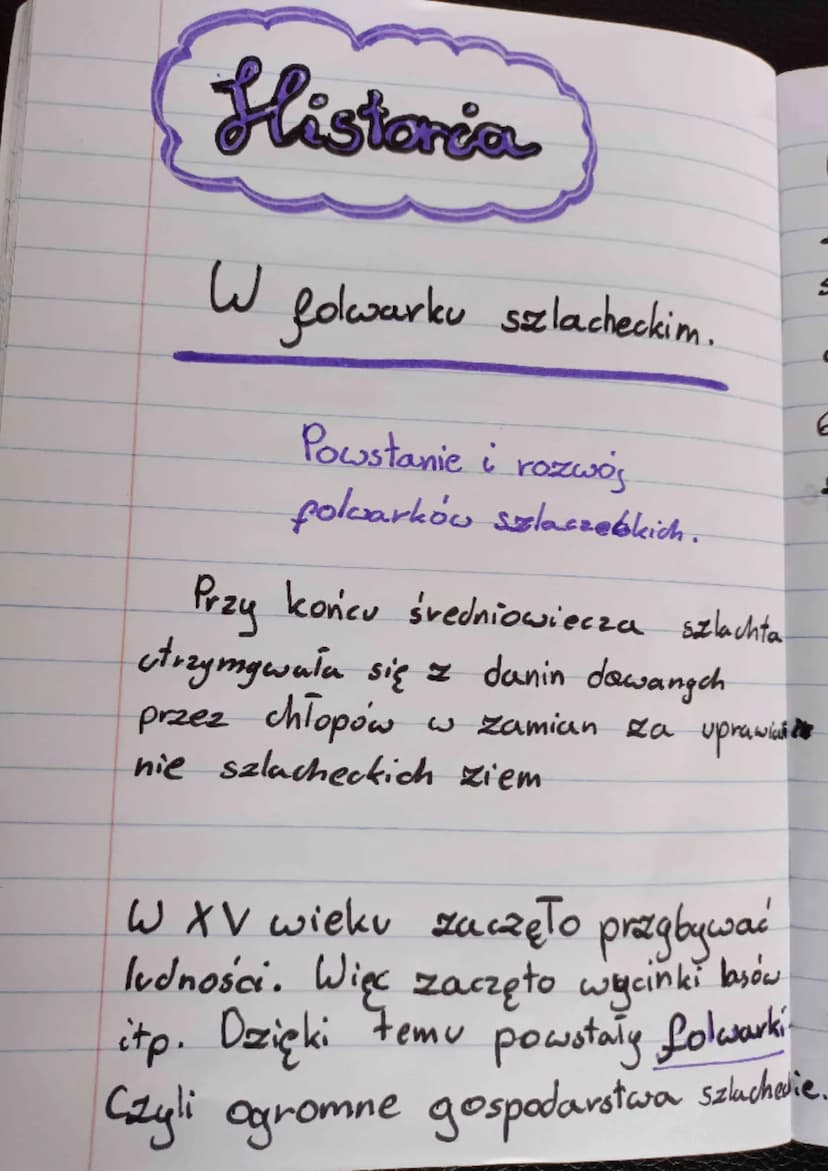 Historia
W folwarku szlacheckim.
Powstanie i rozwój
folwarków szlaczebkich.
Przy końcu średniowiecza szlachta
utrzymywała się z danin dawanych
przez chłopów w zamian za uprawia
nie szlacheckich ziem
W XV wieku zaczęło przybywać
ludności. Więc zaczęto wycinki lasów
itp. Dzięki temu powstały folwarki
Czyli ogromne gospodarstwa szlacheckie.